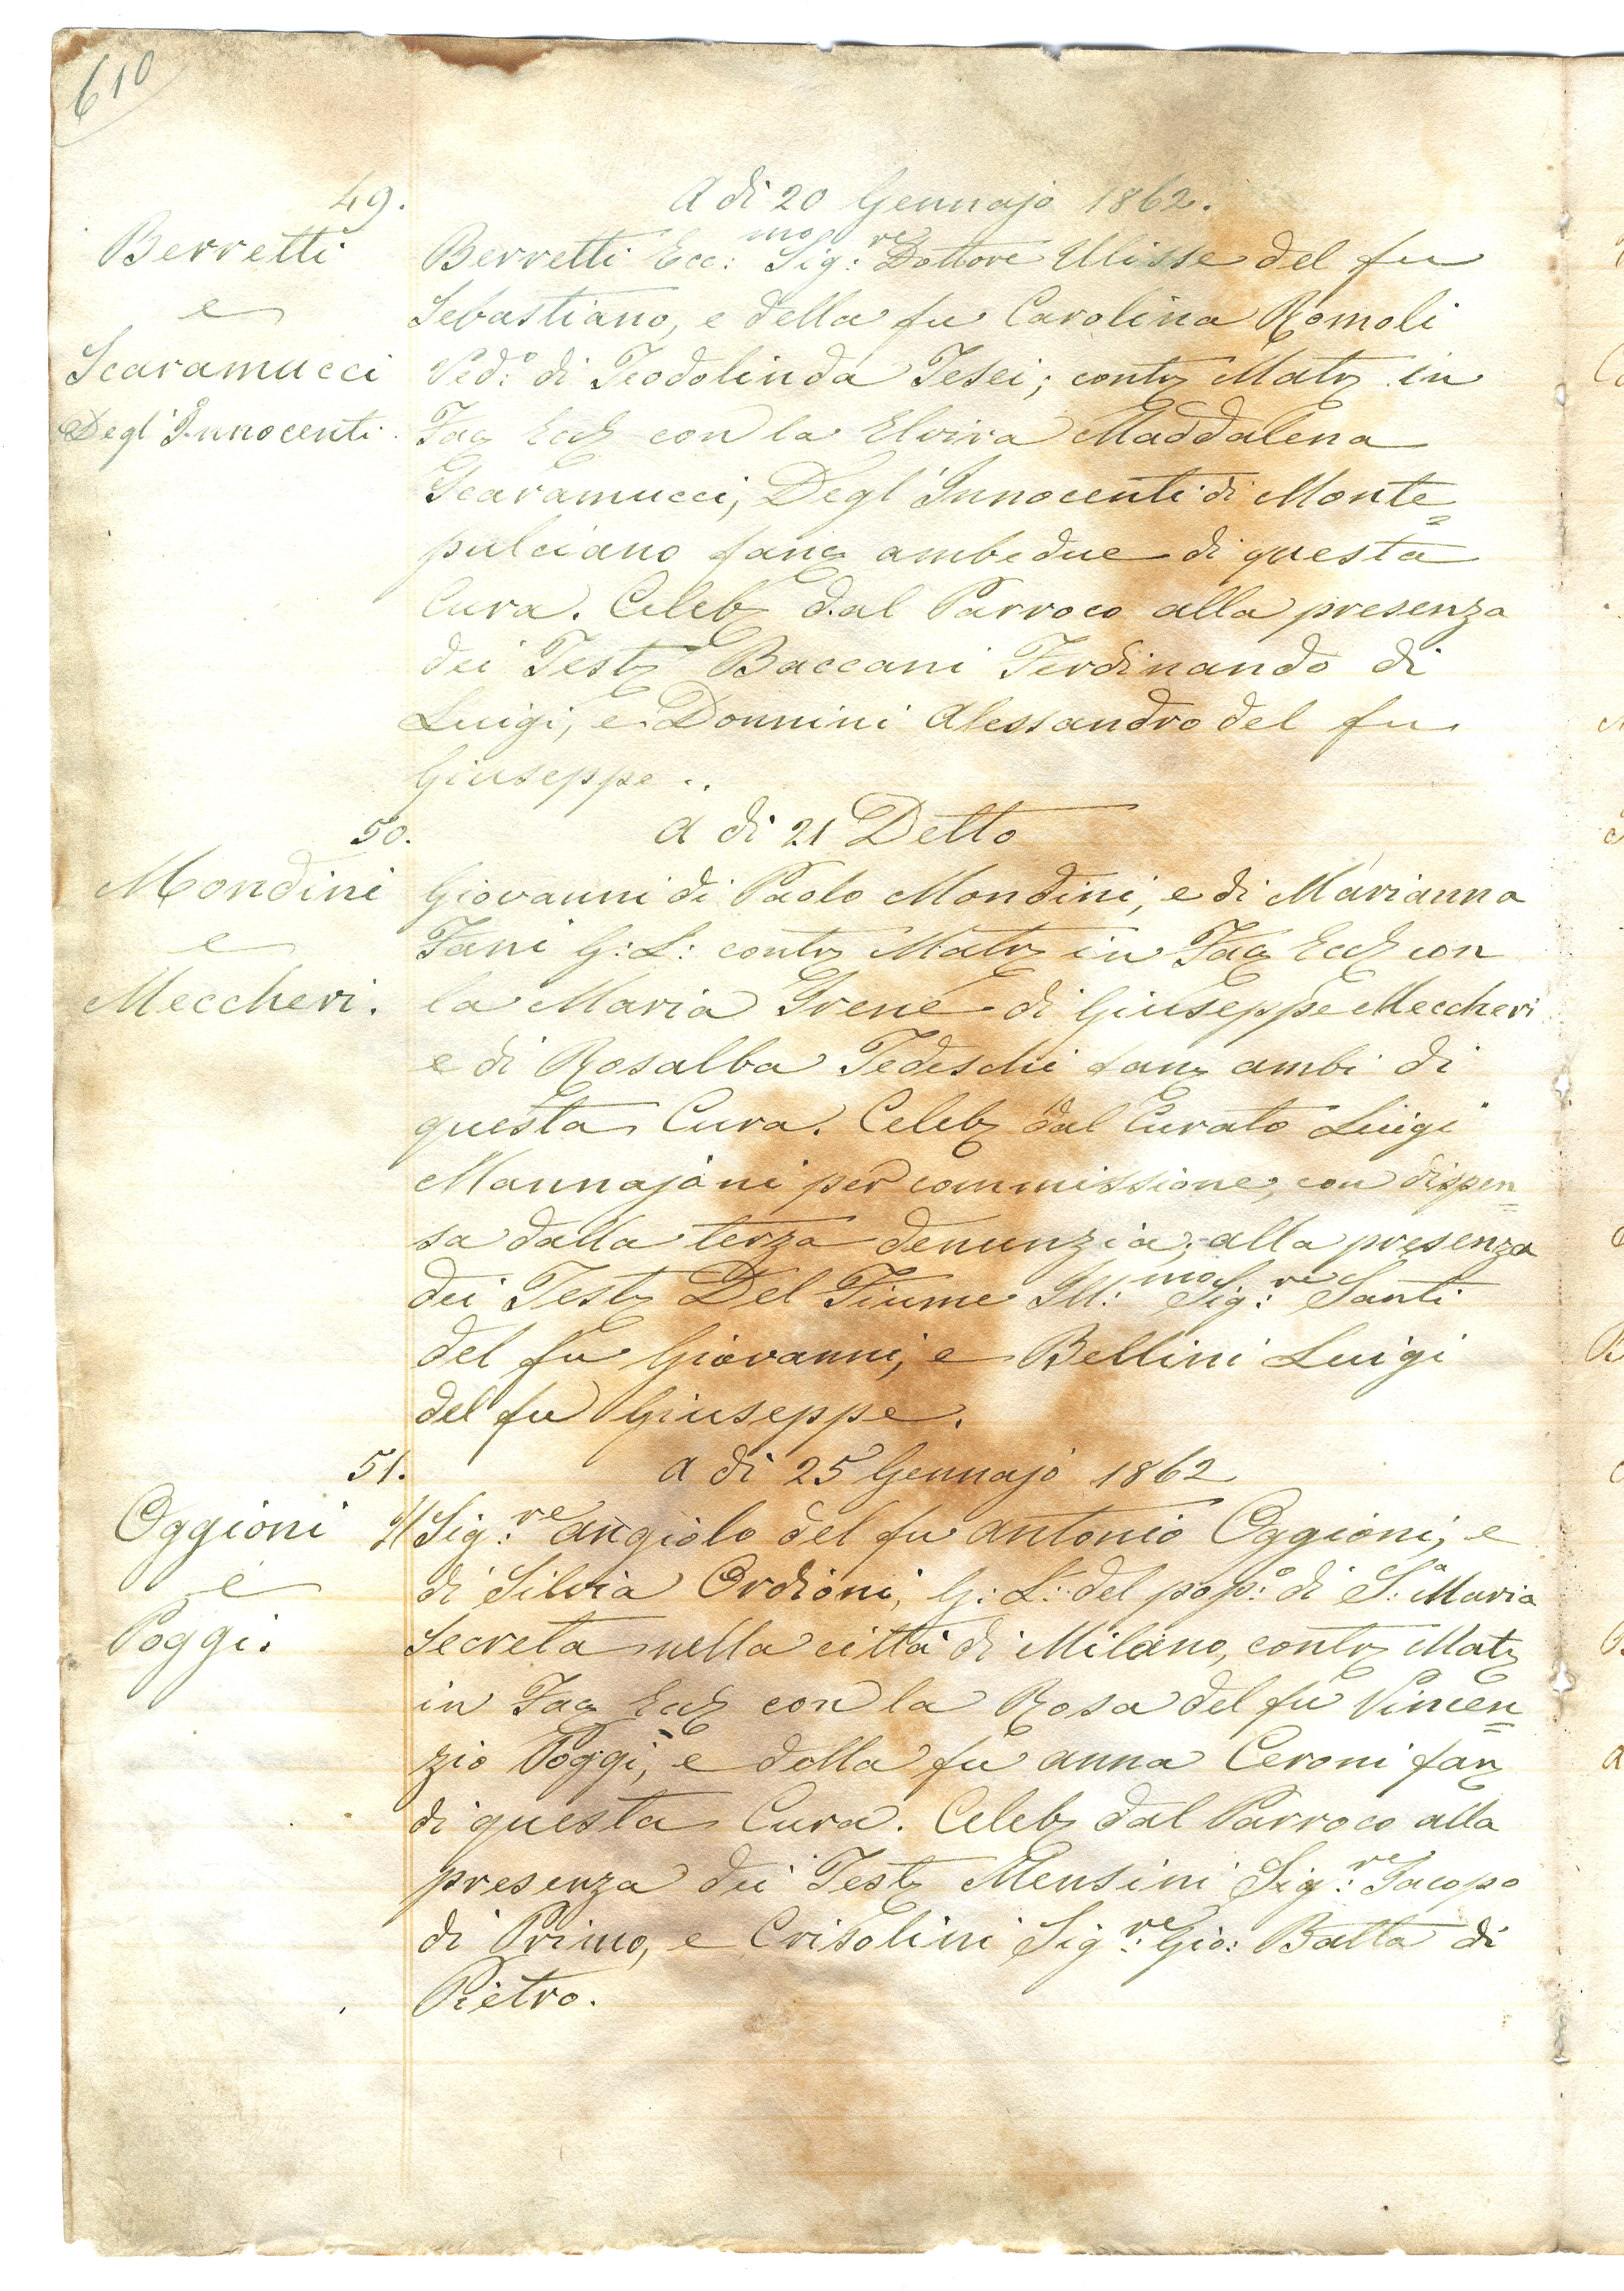 610
49.
A di 20 Gennajo 1862.
Berretti
e
Scaramucci
Degl'Innocenti.
Berretti Ecc:mo Sig:re Dottore Ulisse del fu
Sebastiano, e della fu Carolina Romoli
Ved:o di Teodolinda Tesei; contr Matr in
Fac Eccl con la Elvira Maddalena
Scaramucci, Degl'Innocenti di Monte=
pulciano fanc ambedue di questa
Cura. Celeb dal Parroco alla presenza
dei Test Baccani Ferdinando di
Luigi, e Donnini Alessandro del fu
Giuseppe..
50.
A di 21 Detto
Mondini
e
Meccheri.
Giovanni di Paolo Mondini, e di Marianna
Fani G: L: contr Matr in Fac Eccl con
la Maria Irene di Giuseppe Meccheri
e di Rosalba Tedeschi fanc ambi di
questa Cura. Celeb dal Curato Luigi
Mannajoni per commissione, con dispen=
sa dalla terza denunzia; alla presenza
dei Test Del Fiume Ill:mo Sig:re Santi
del fu Giovanni, e Bellini Luigi
del fu Giuseppe.
51.
A di 25 Gennajo 1862
Oggioni
e
Poggi.
Il Sig:re Angiolo del fu Antonio Oggioni, e
di Silvia Ordioni, G: L: del pop:o di S:a Maria
Secreta nella città di Milano, contr Matr
in Fac Eccl con la Rosa del fu Vincen=
zio Poggi, e della fu Anna Ceroni fan
di questa Cura. Celeb dal Parroco alla
presenza dei Test Mensini Sig:re Jacopo
di Primo, e Crisolini Sig:re Gio: Batta di
Pietro.